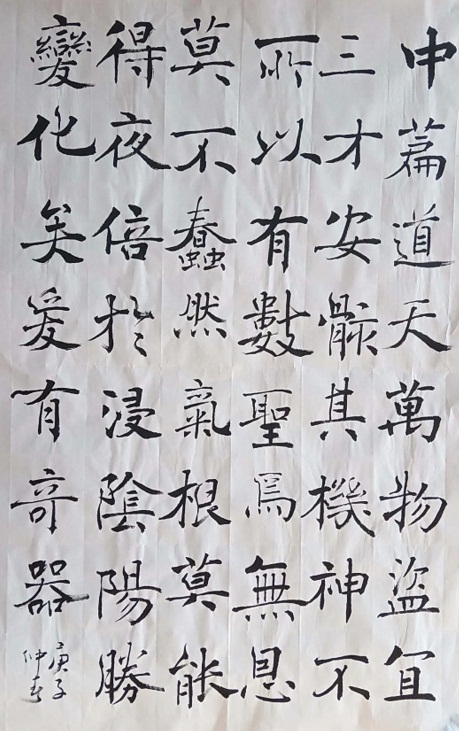 中篇道天萬物盜冝
三才安骸其機神不
所以有數聖焉無恩
莫不蠢然氣根莫能
得夜倍於浸陰陽勝
變化矣爰有奇器
庚子
仲春